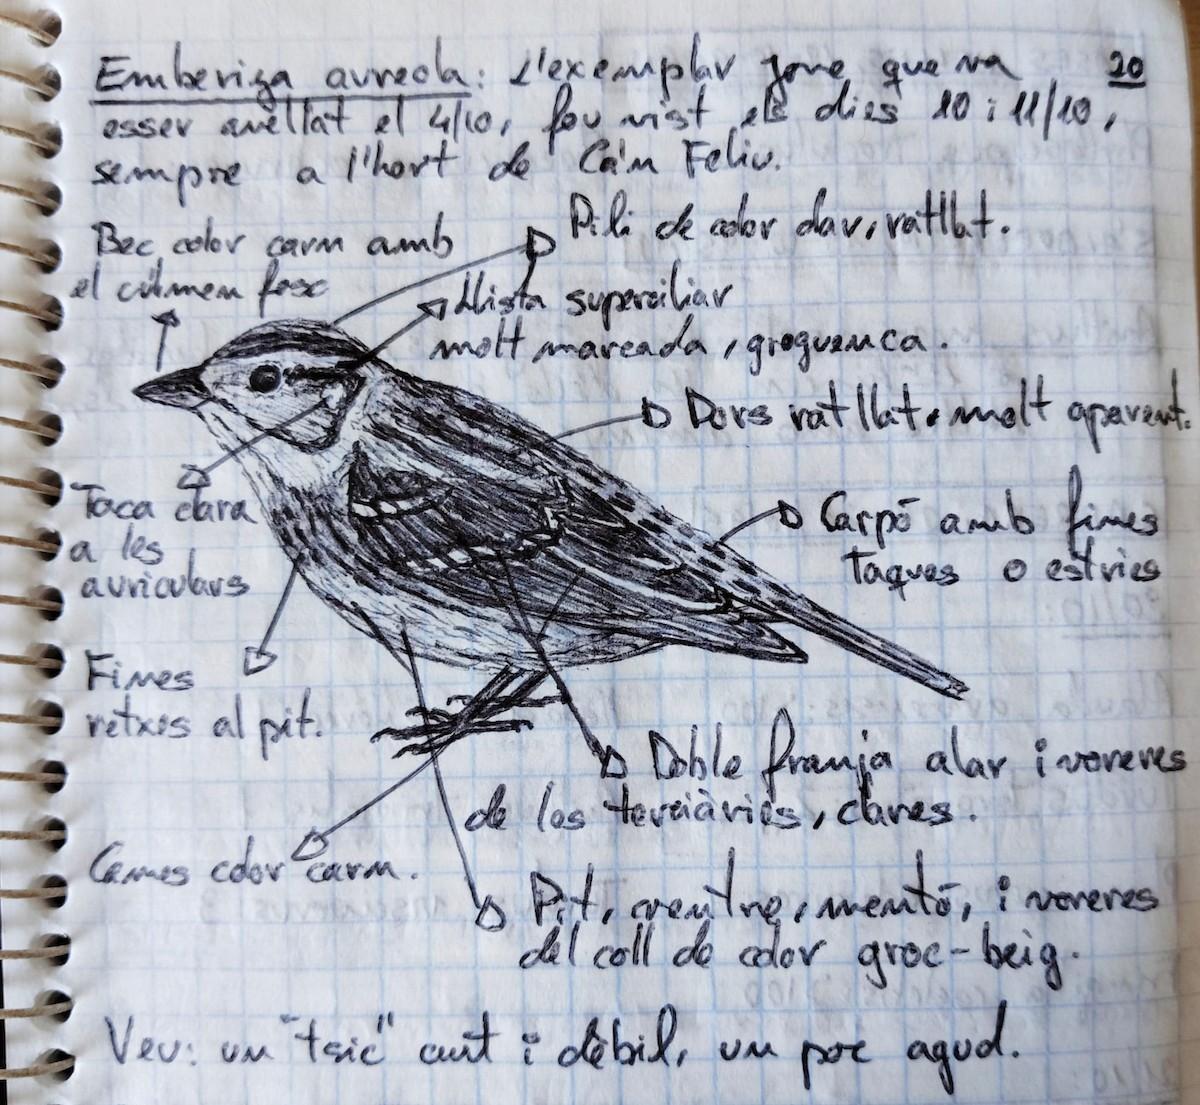 Emberiza aureola: L'exemplar jove que va 20
esser anellat el 4/10, fou vist els dies 10 i 11/10,
sempre a l'hort de Ca'n Feliu.
Bec color carn amb
el cúlmen fosc
Pili de color clar, ratllat.
Llista superciliar
molt marcada, groguenca.
Dors ratllat, molt aparent.
Taca clara
a les
auriculars
Carpó amb fines
taques o estries
Fines
retxes al pit.
Doble franja alar i voreres
de les terciàries, clares.
Cames color carn.
Pit, ventre, mentó, i voreres
del coll de color groc-beig.
Veu: un "tsic" curt i dèbil, un poc agud.